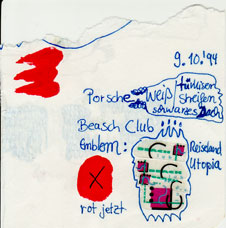 9.10.'94
Porsche weiß
schwarzes Dach
Beasch Club
Emblem:
Reiseland
Utopia
X
rot jetzt